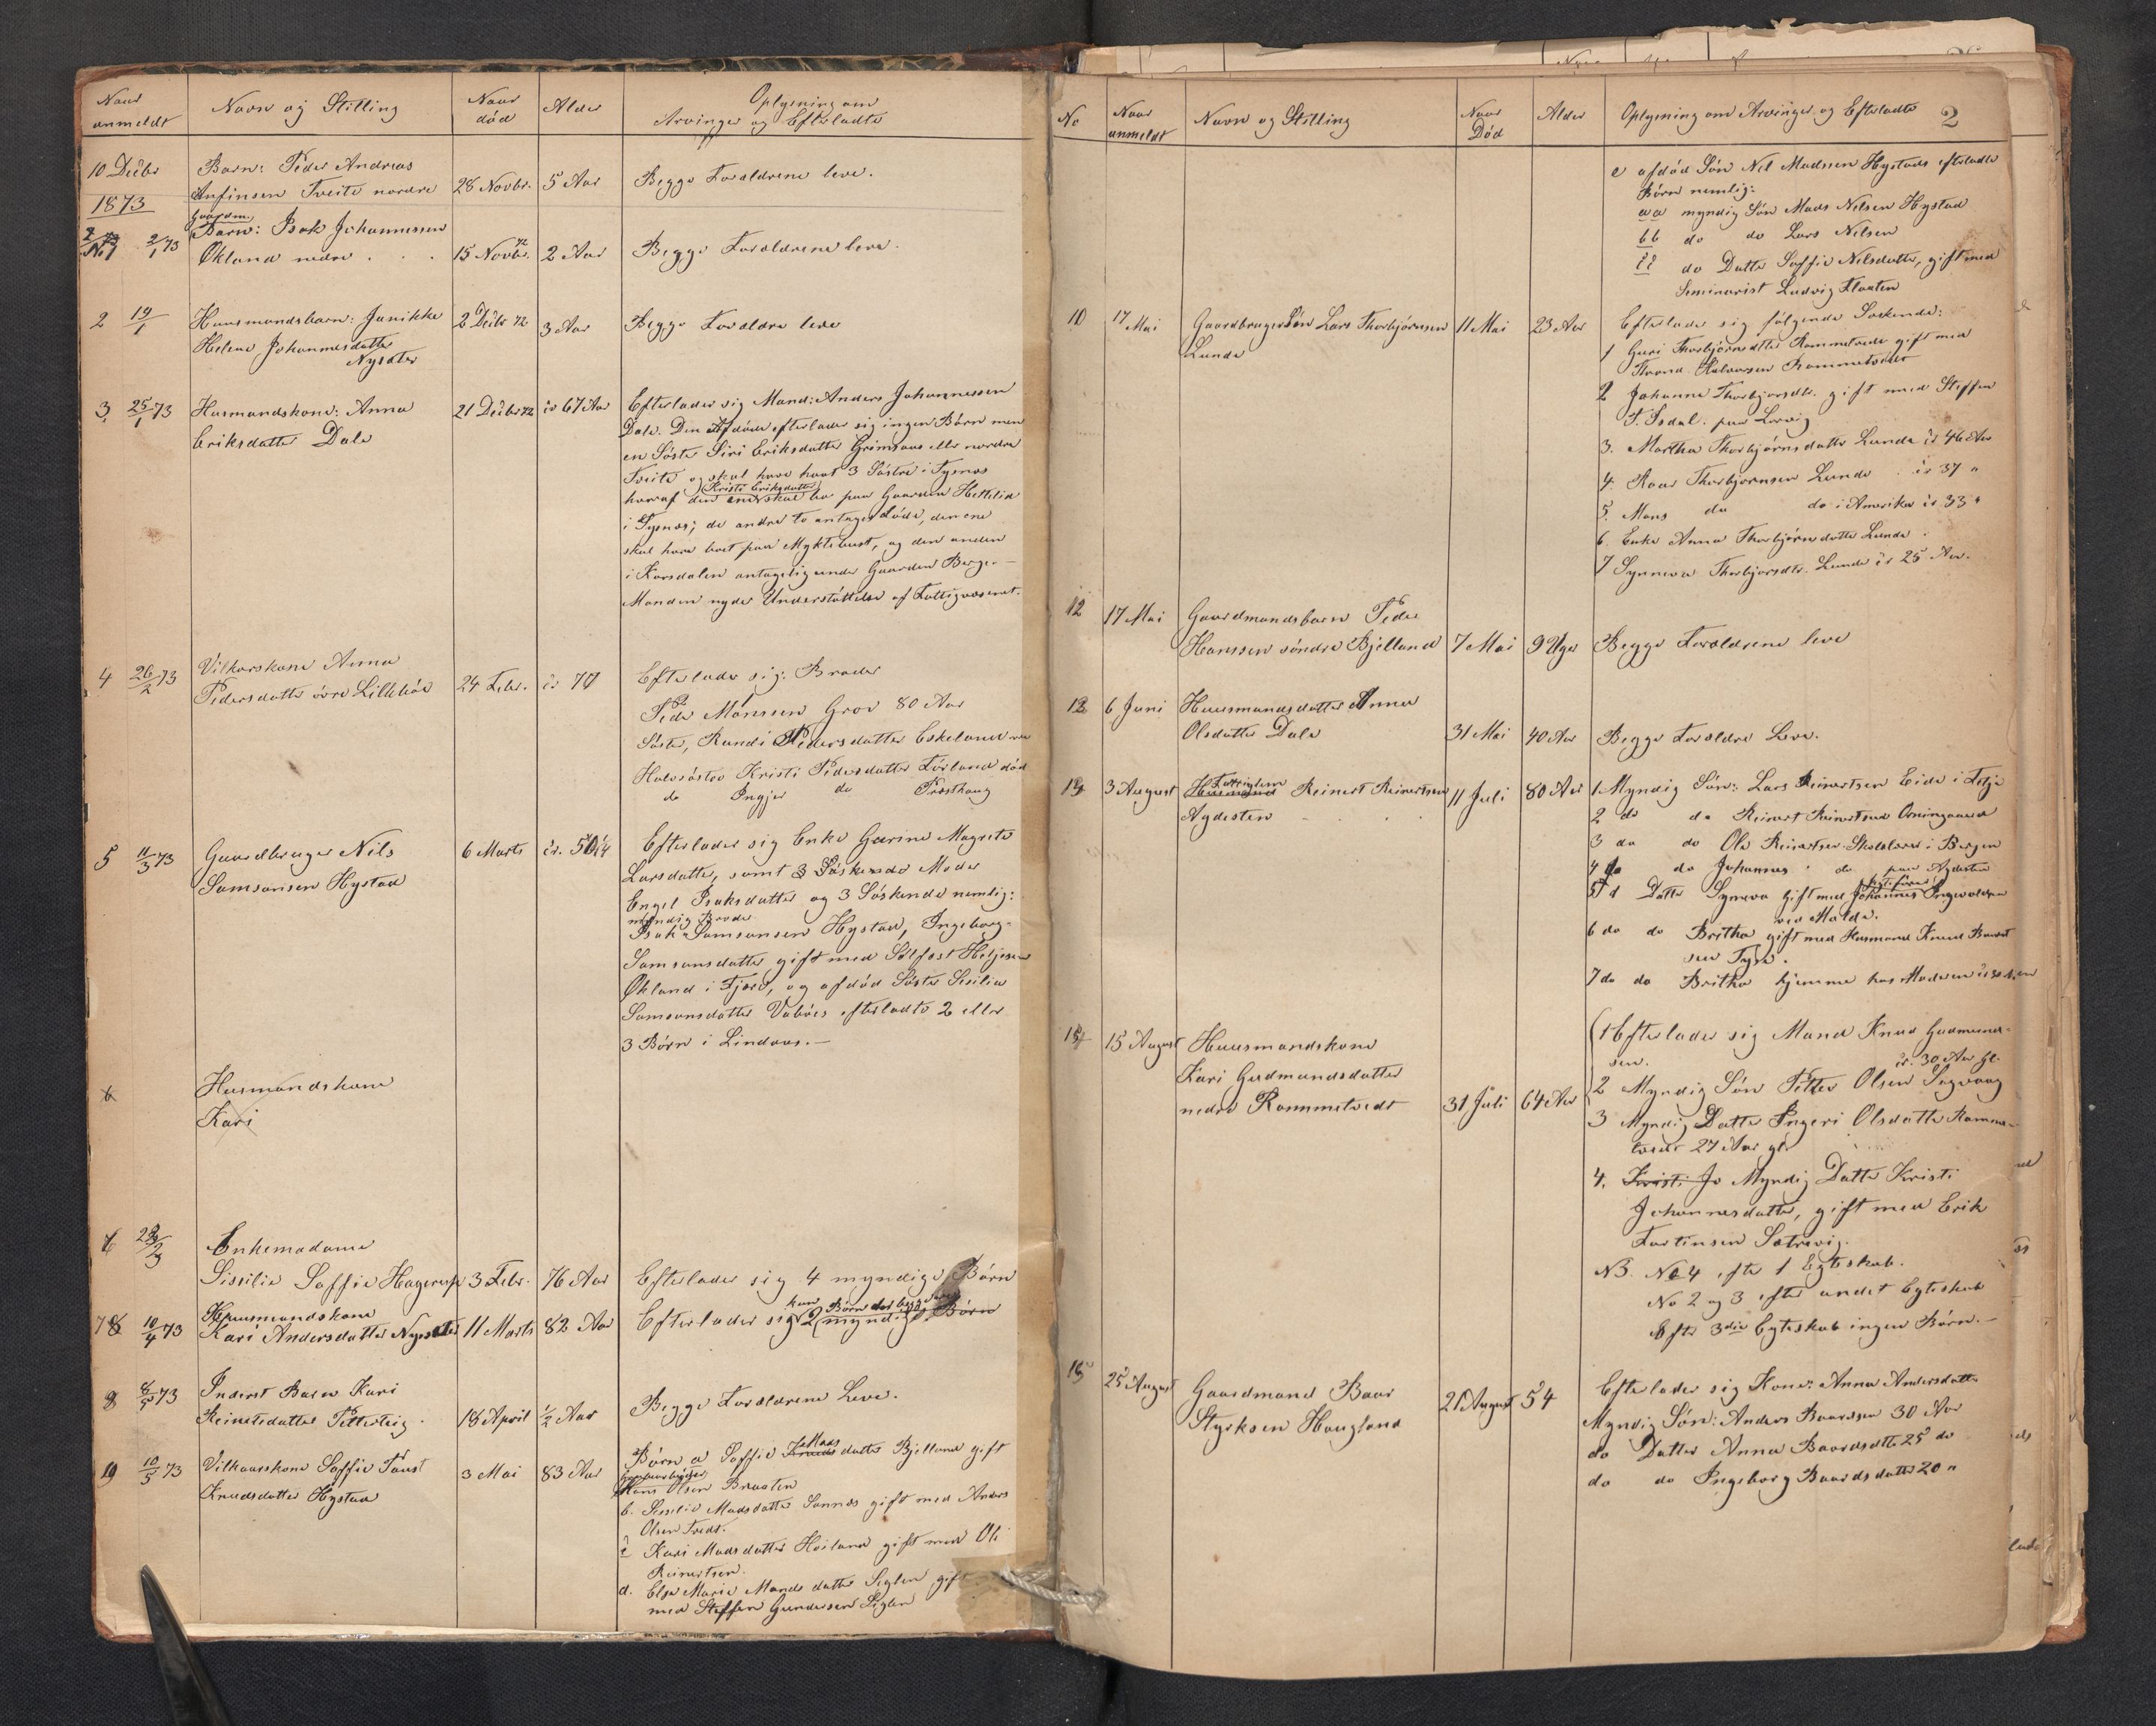 Naar anmeldt
Navn og Stilling
Naar död
Alder
Oplysning om Arvinger og Efterladte
10 Decbr
Barn: Peder Andreas
Anfinsen Tveite nordre
28 Novbr.
5 Aar
Begge Forældrene leve.
1873
Gaardm.
Barn: Isak Johannessen
Økland nedre
15 Novbr. 72
2 Aar
Begge Forældrene leve.
2 19/1
Huusmandsbarn: Janikke
Helene Johannesdatter
Nysæter
2 Decbr 72
3 Aar
Begge Forældre leve
3. 25/1 73
Husmandskone: Anna
Eriksdatter Dale
21 Decbr 72
67 Aar
Efterlader sig Mand: Anders Johannessen
Dale. Den Afdöde efterlader sig ingen Börn men
en Söster Siri Eriksdatter Grimsaas eller nordre
Tveite og skal have havt 3 Söstre i Tysnæs
(Kristi Eriksdatter)
hvoraf den ene skal bo paa Gaarden Hettelid
i Tysnæs; de andre to antages döde, den ene
skal have boet paa Myklebust, og den anden
i Korsdalen antagelig under Gaarden Berge. —
Manden nyder Understöttelse af Fattigvæsenet.
4 26/2 73
Vilkaarskone Anna
Pedersdatter övre Lilleböe
24 Febr.
77
Efterlader sig: Broder
Peder Mönssen Grov 80 Aar
Söster, Randi Pedersdatter Eskeland
Halvsöster Kristi Pedersdatter Förland död
do Ingjer do Træsthaug
5 11/3 73
Gaardbruger Nils
Samsonsen Hystad
6 Marts
Efterlader sig Enke Gurine Magrete
Larsdatter, samt Moder
Engel Isaksdatter og 3 Söskende nemlig:
myndig Broder
Isak Samsonsen Hystad, Ingeborg
Samsonsdatter gift med Sölfest Heljesen
Økland i Fjære, og afdöd Söster Sesilia
Samsonsdatter efterladte 2 eller
3 Börn i Lindaas. —
6
Husmandskone
Kari
Enkemadame
Sissilie Soffie Hagerup
3 Febr.
76 Aar
Efterlader sig 4 myndige Börn
7 10/4 73
Huusmandskone
Kari Andersdatter Nysæter
11 Marts
82 Aar
Efterlader sig 2 myndige Börn
8 8/5 73
Inderst Barn Kari
Reinertsdatter Petterteig
18 April
1/2 Aar
Begge Forældrene Leve.
9 10/5 73
Vilkaarskone Soffie
Knudsdatter Hystad
3 Mai
83 Aar
Börn a Soffie Madsdatter Bjelland gift
Hans Olsen Braaten
b. Sissilie Madsdatter Sannæs gift med Anders
Olsen Tvedt.
c Kari Madsdatter Hoiland gift med Ole
Reinertsen.
d. Else Marie Mandsdatter Seglen gift
med Steffen Gundersen Siglen
No
Naar anmeldt
Navn og Stilling
Naar Död
Alder
Oplysning om Arvinger og Efterladte
2
e afdöd Sön Nil Madssen Hystads efterladte
Börn nemlig:
aa myndig Sön Mads Nilsen Hystad
bb do do Lars Nilsen
cc do Datter Soffie Nilsdatter, gift med
Seminarist Ludvig Flaaten
10
17 Mai
Gaardbruger Sön Lars Thorbjörnsen
Lunde
11 Mai
23 Aar
Efterlader sig fölgende Söskende:
1 Guri Thorbjörnsdtter Rommetvedt gift med
Thrond Halvorsen Rommetvedt
2 Johanne Thorbjörnsdtr. gift med Steffen
T. Isdal. paa Lervig
3. Martha Thorbjörnsdatter Lunde 46 Aar
4. Roar Thorbjörnsen Lunde 37 "
5. Mons do do i Amerika 33 "
6. Enke Anna Thorbjörnsdatter Lunde.
7 Synneva Thorbjörnsdtr. Lunde 25 Aar.
12
17 Mai
Gaardmandsbarn Peder
Hanssen söndre Bjelland
7 Mai
9 Uger
Begge Forældrene leve
6 Juni
Huusmandsdatter Anna
Olsdatter Dale
31 Mai
40 Aar
Begge Forældre Leve.
3 August
Fattiglem
Reinert Reinertsen
Agdesten
11 Juli
80 Aar
1 Myndig Sön: Lars Reinertsen Eide i Fitje
2 do do Reinert Reinertsen
3 do do Ole Reinertsen Skolelærer i Bergen
4 do do Johannes do paa Agdesten
5 d Datter Syneva gift med Johannes Ingevaldsen
ved Molde.
6 do do Britha gift med Husmand Knud
sen Tyse.
7 do do Britha hjemme hos Moderen
15 August
Huusmandskone
Kari Gudmundsdatter
nedre Rommetvedt
31 Juli
64 Aar
1 Efterlader sig Mand Knud Gudmund-
sen.
30 Aar gl.
2 Myndig Sön Petter Olsen Sagvaag
3 Myndig Datter Ingeri Olsdatter Romme-
tvedt 27 Aar gl
4. Myndig Datter Kristi
Johannesdatter, gift med Erik
Fartinsen Sætrevig.
NB. No 4 efter 1 Egteskab.
No 2 og 3 efter andet Egteskab
Efter 3die Egteskab ingen Börn. —
15
25 August
Gaardmand Baar
Styrksen Haugland
21 August
54
Efterlader sig Kone: Anna Andersdatter
Myndig Sön: Anders Baardsen 30 Aar
do Datter Anna Baardsdtter 25 do
do do Ingeborg Baardsdatter 20 "